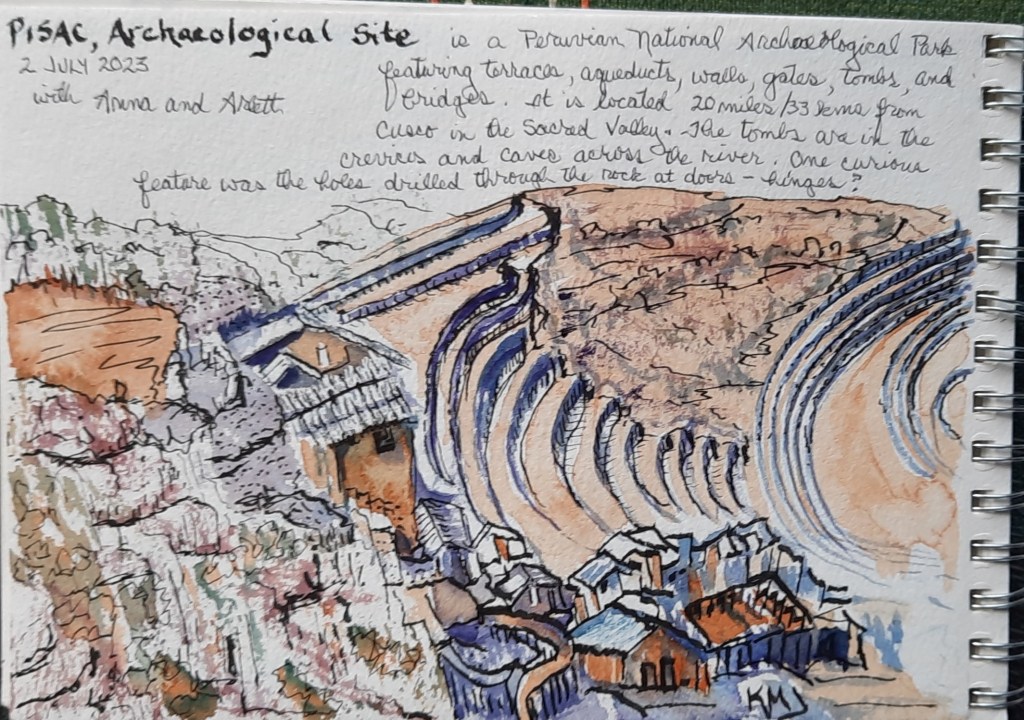 PISAC, Archaeological Site is a Peruvian National Archaeological Park
2 JULY 2023 featuring terraces, aqueducts, walls, gates, tombs, and
with Anna and Arlett bridges. It is located 20 miles/33 kms from
Cusco in the Sacred Valley. The tombs are in the
crevices and caves across the river. One curious
feature was the holes drilled through the rock at doors - hinges?
KMJ